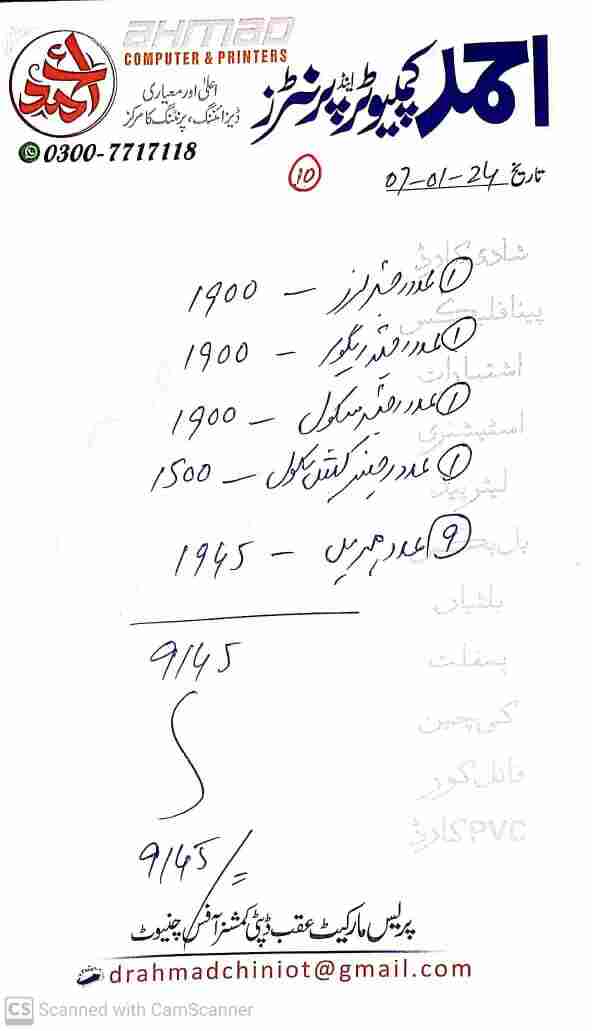 AHMAD
COMPUTER & PRINTERS
احمد کمپیوٹر اینڈ پرنٹرز
اعلیٰ اور معیاری
ڈیزائننگ، پرنٹنگ کا مرکز
0300-7717118
10
تاریخ 07-01-24
شادی کارڈ
پینا فلیکس
اشتہارات
اسٹیشنری
لیٹر پیڈ
بل بک
بلٹیاں
پمفلٹ
کی چین
فائل کور
PVC کارڈ
① عدد رجسٹر لرنر – 1900
① عدد رجسٹر ریگولر – 1900
① عدد رجسٹر سکول – 1900
① عدد رجسٹر سکول – 1500
⑨ عدد مہریں – 1945
9145
9145/=
پریس مارکیٹ عقب ڈپٹی کمشنر آفس چنیوٹ
drahmadchiniot@gmail.com
CS Scanned with CamScanner